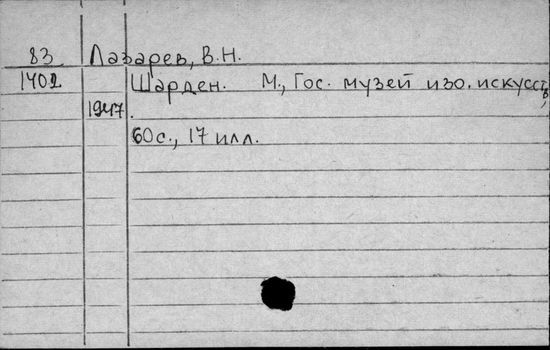 83 Лазарев, В.Н.
1402 Шарден. М., Гос. музей изо. искусств,
1947.
60с., 17 илл.